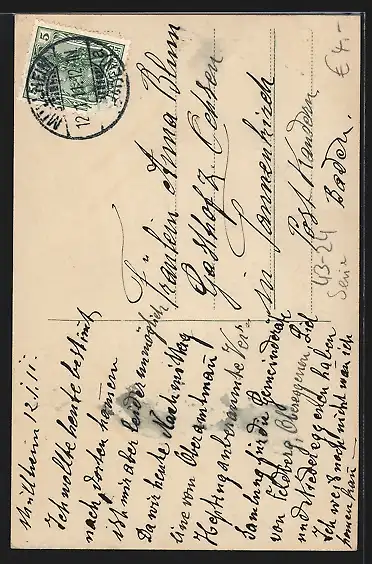 MÜLLHEIM
12.1.11
5
€ 4.-
Fräulein Anna Blum
Gasthof z. Ochsen
in Tannenkirch
Post Kandern
Baden.
43-24
Müllheim 12.1.11.
Ich wollte heute bestimmt
nach dorten kommen
ist mir aber leider unmöglich
Da wir heute Nachmittag
eine vom Oberamtmann
Hepting anberaumte Ver-
samlung für die Gemeinderäte
von Feldberg, Obereggenen,
und Niedereggenen haben
Ich weiß noch nicht wan ich
komen kan